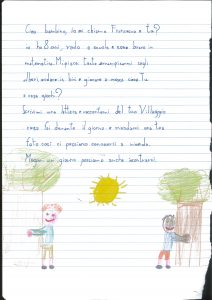 Ciao bambino, io mi chiamo Francesco e tu?
io ho 8 anni, vado a scuola e sono bravo in
matematica. Mi piace tanto arrampicarmi sugli
alberi, andare in bici e giocare a nascondino. Tu
a cosa giochi?
Scrivimi una lettera e raccontami del tuo villaggio
cosa fai durante il giorno e mandami una tua
foto così ci possiamo conoscere a vicenda.
Magari un giorno possiamo anche incontrarci.